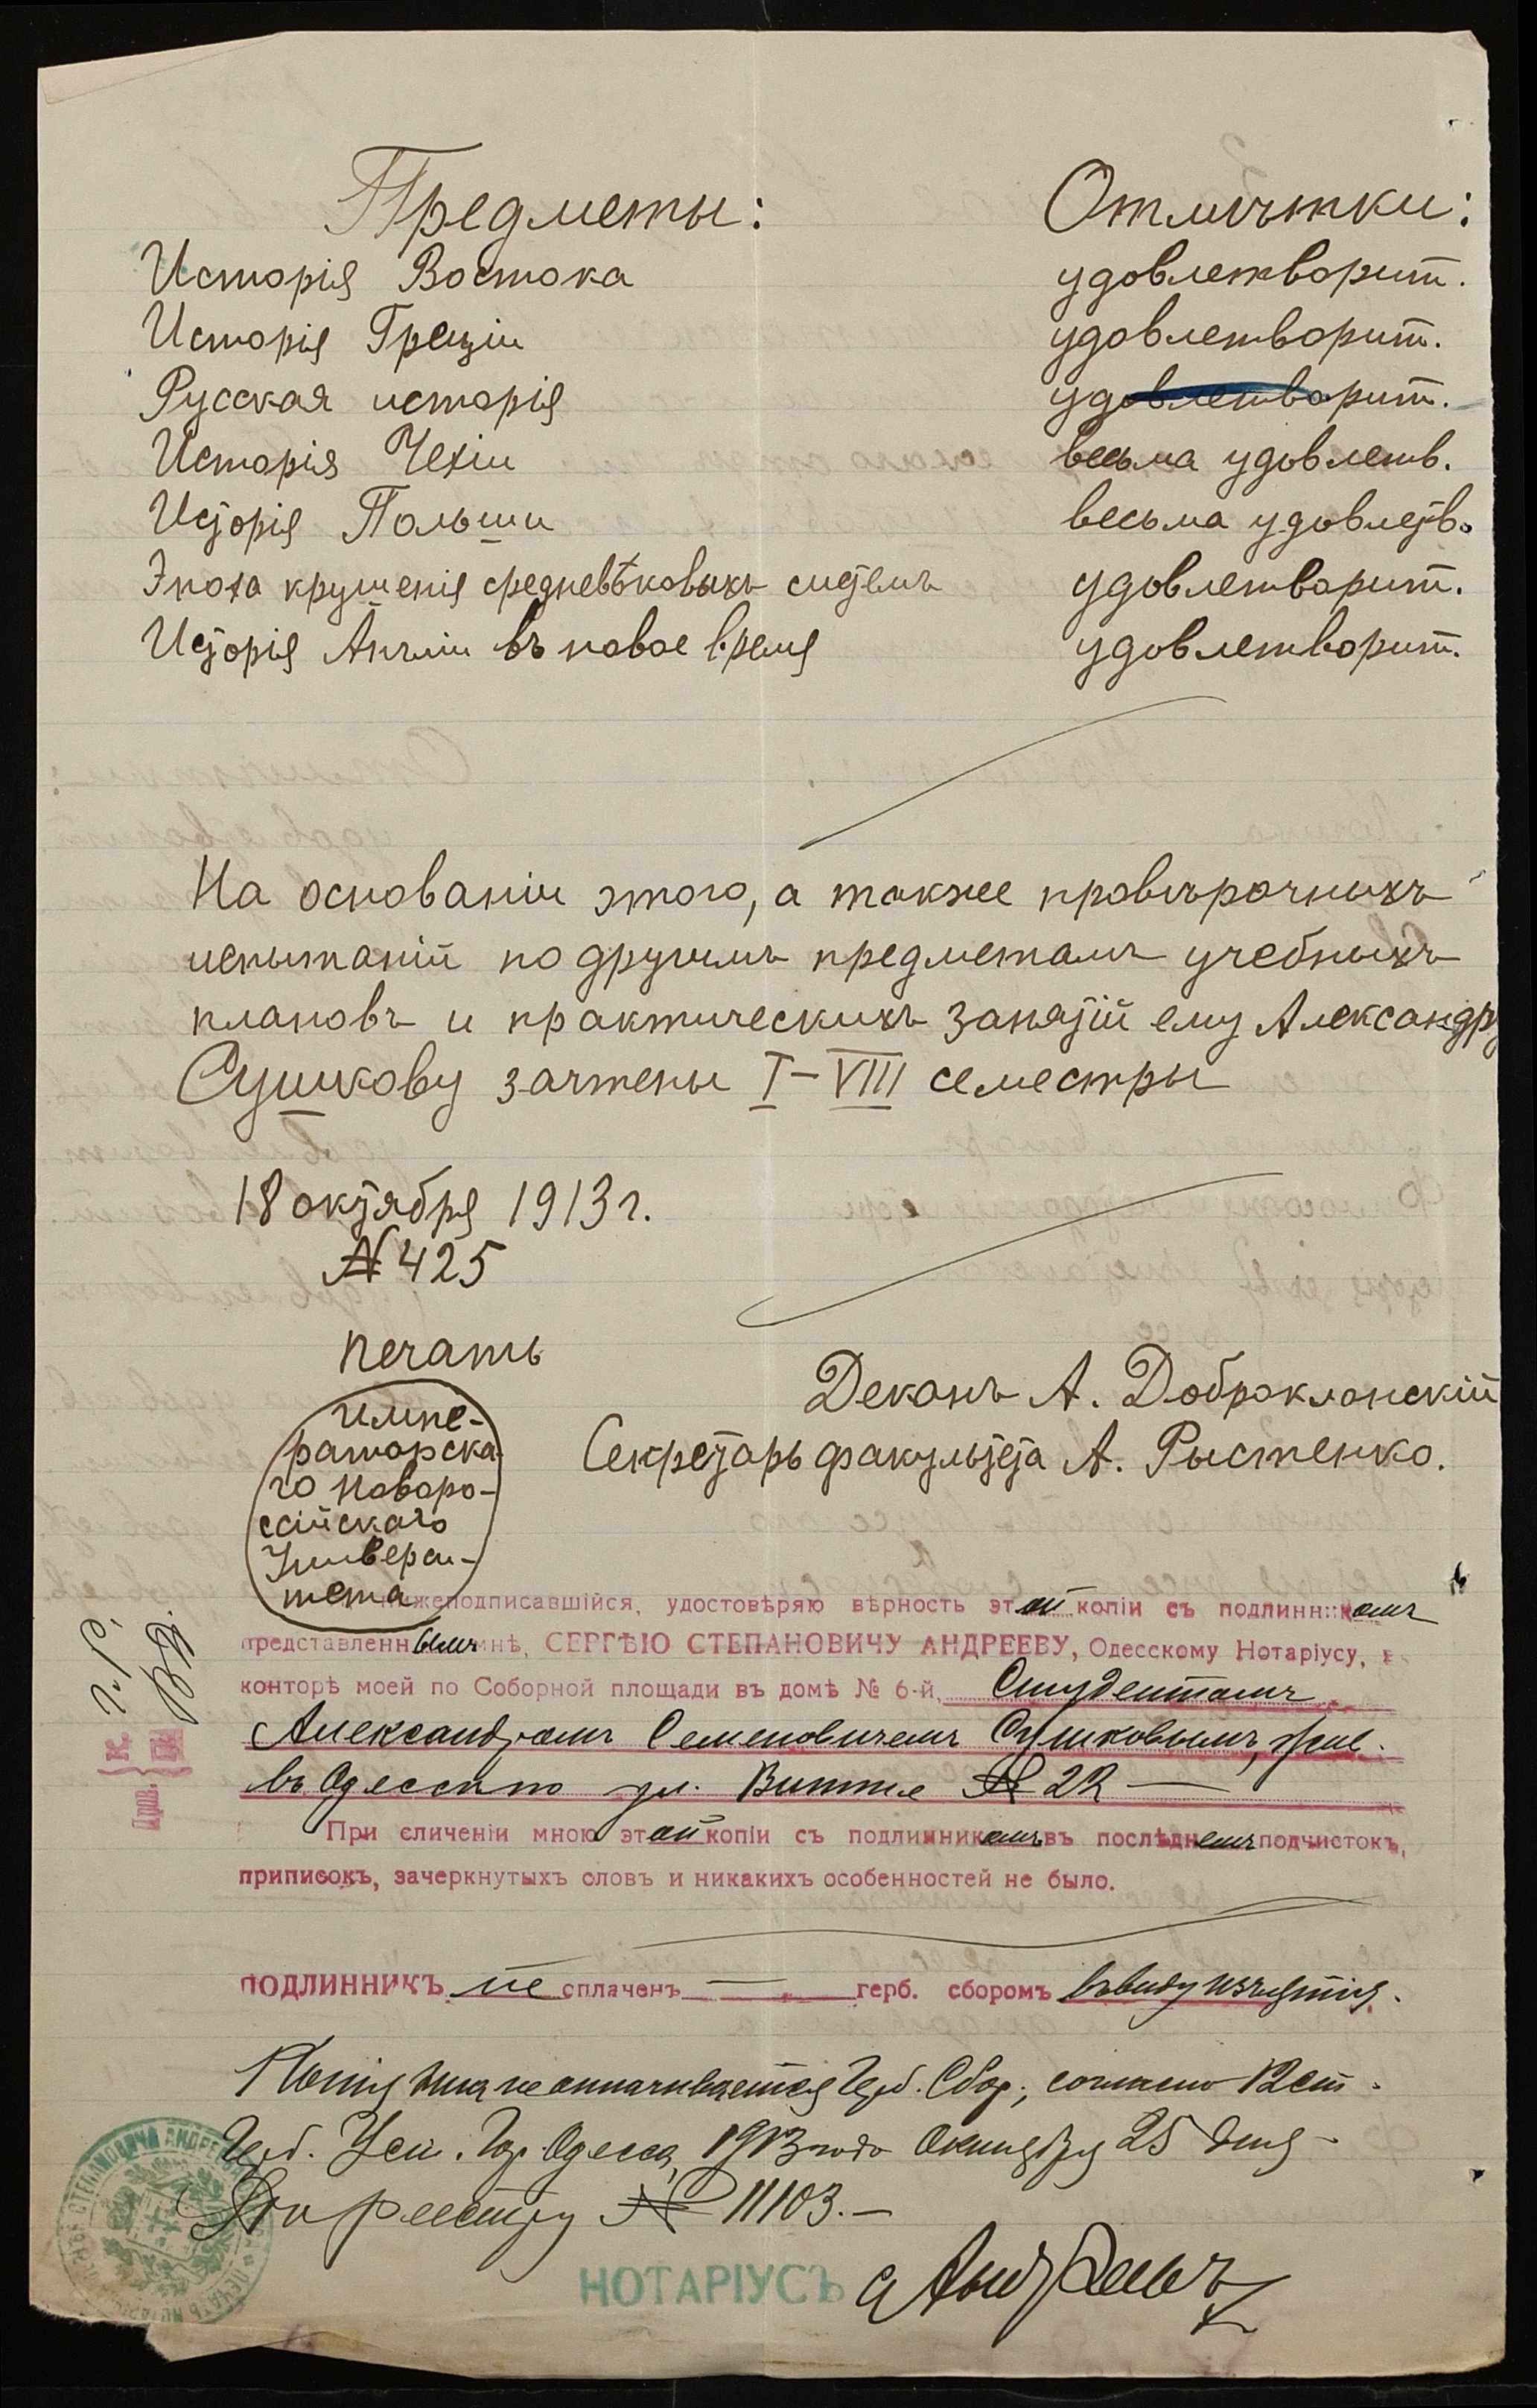 Предметы: Отмѣтки:
Исторія Востока удовлетворит.
Исторія Греціи удовлетворит.
Русская исторія удовлетворит.
Исторія Чехіи весьма удовлетв.
Исторія Польши весьма удовлетв.
Эпоха крушенія средневѣковыхъ системъ удовлетворит.
Исторія Англіи въ новое время удовлетворит.
На основаніи этого, а также провѣрочныхъ
испытаній по другимъ предметамъ учебныхъ
плановъ и практическихъ занятій ему Александру
Сушкову зачтены I – VIII семестры
18 октября 1913 г.
№ 425
печать
Импе-
раторска
го Новоро-
ссійскаго
Универси-
тета
Деканъ А. Доброклонскій
Секретарь факультета А. Рыстенко.
нижеподписавшійся, удостовѣряю вѣрность этой копіи съ подлинникомъ
представленнымъ мнѣ, СЕРГѢЮ СТЕПАНОВИЧУ АНДРЕЕВУ, Одесскому Нотаріусу, в
конторѣ моей по Соборной площади въ домѣ № 6-й, Студентомъ
Александромъ Семеновичемъ Сушковымъ, жив.
въ Одессѣ по ул. Витте № 22 —
При сличеніи мною этой копіи съ подлинникомъ въ послѣднемъ подчистокъ,
приписокъ, зачеркнутыхъ словъ и никакихъ особенностей не было.
ПОДЛИННИКЪ не оплаченъ — герб. сборомъ въ виду изъятія.
Копія сія не оплачивается Герб. Сбор., согласно 12 ст.
Герб. Уст. Гор. Одесса, 1913 года Октября 25 дня –
По реестру № 11103. –
НОТАРІУСЪ С Андреевъ